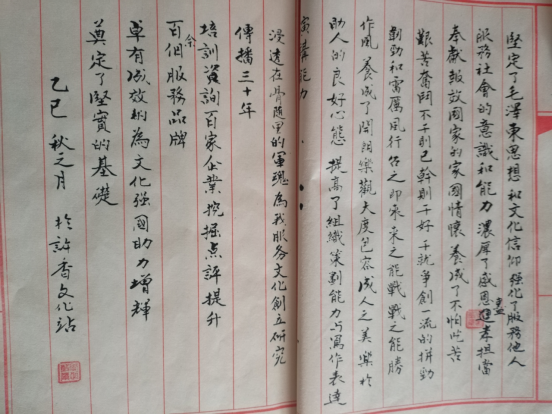 堅定了毛澤東思想和文化信仰 強化了服務他人
服務社會的意識和能力 濃厚了感恩盡孝担當
奉献報效國家的家國情懷 養成了不怕吃苦
艱苦奮鬥不干則已幹則干好干就争創一流的拼勁
劃勁和雷厲風行召之即來来之能戰戰之能勝
作風 養成了開朗樂觀大度包容成人之美樂於
助人的良好心態 提高了組織策劃能力与寫作表達
演講能力
浸透在骨随里的軍魂 為我服务文化創立研究
傳播三十年
培訓資詢百家企業 挖掘点評提升
百余個服務品牌
卓有成效的為文化强國助力增輝
奠定了堅實的基礎
乙巳 秋之月 於許香文化站